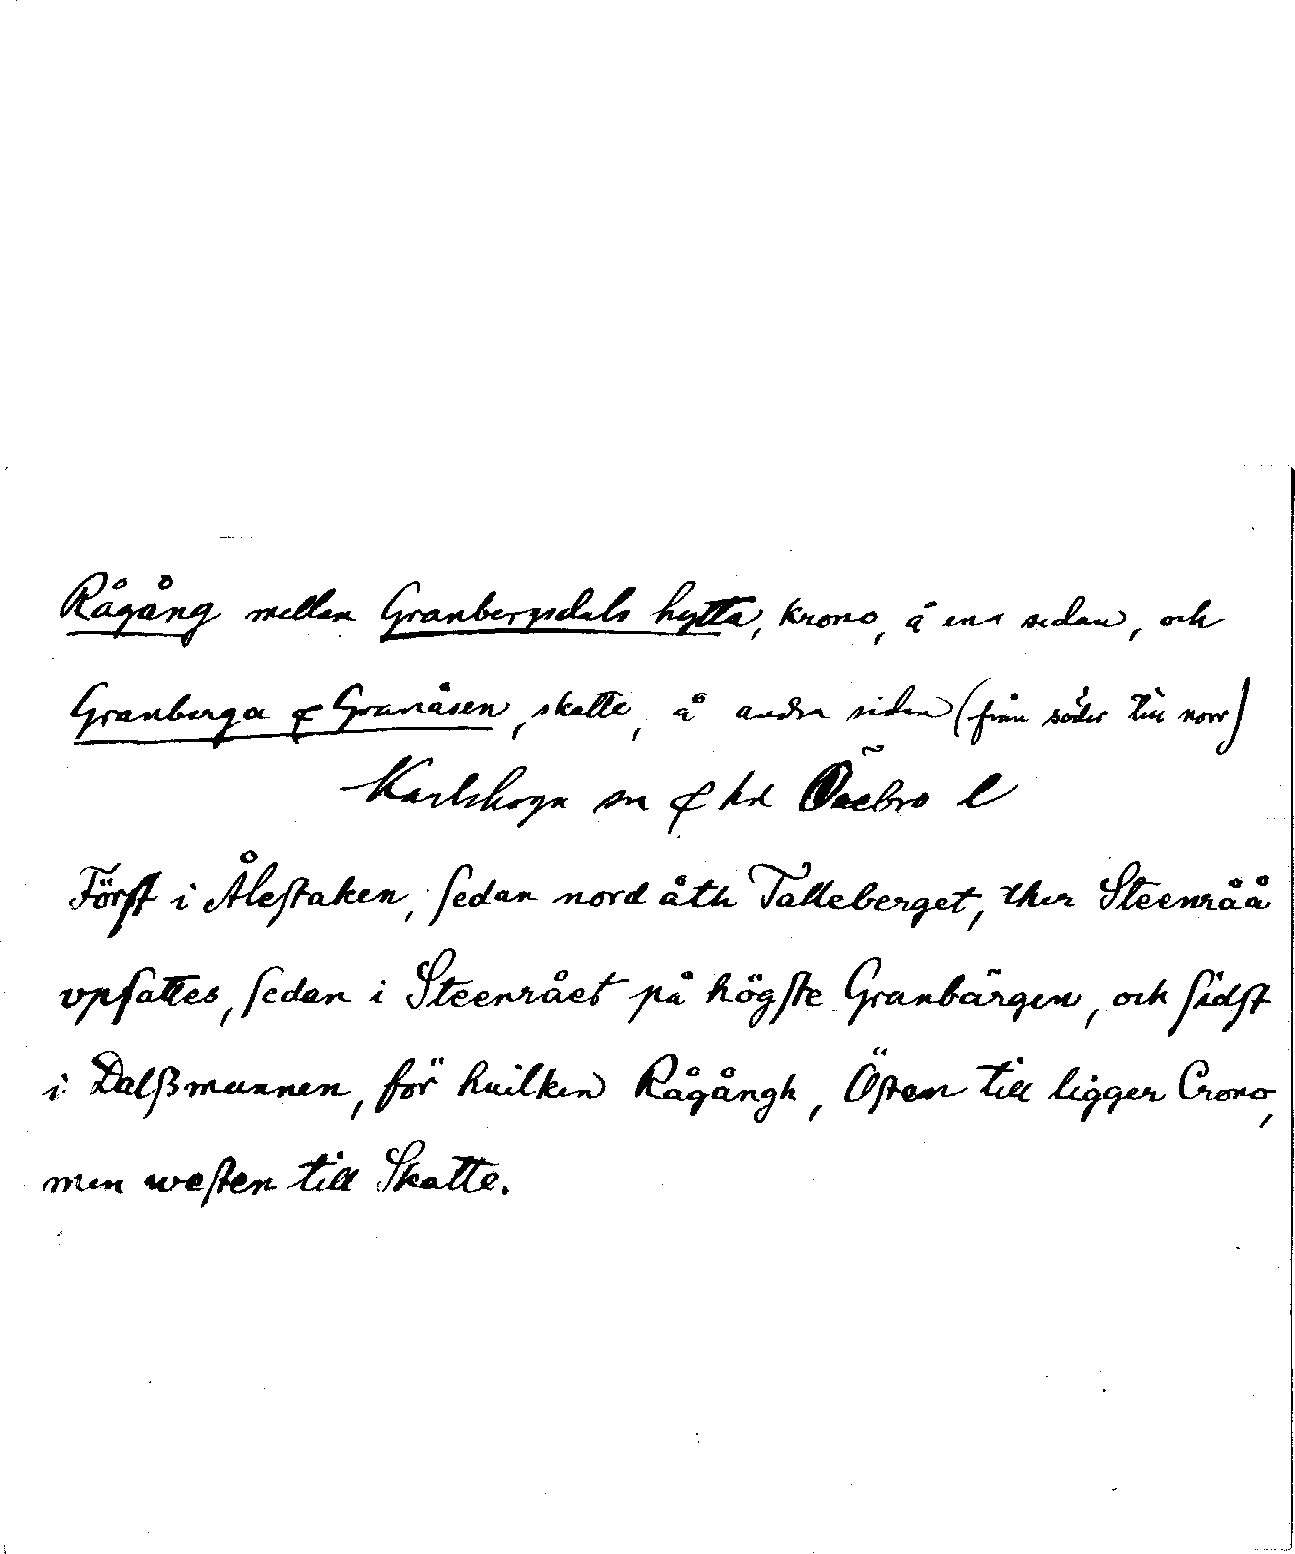 Rågång mellan Granbergsdals hytta, krono, å ena sidan, och
Granberga & Granåsen, skatte, å andra sidan (från söder till norr)
Karlskoga sn & hd Örebro l
Först i Ålestaken, sedan nord åth Talleberget, ther Steenråå
upsattes, sedan i Steenrået på högste Granbärgen, och sidst
i Dalßmunnen, för huilken Rågångh, Östen till ligger Crono,
men westen till Skatte.